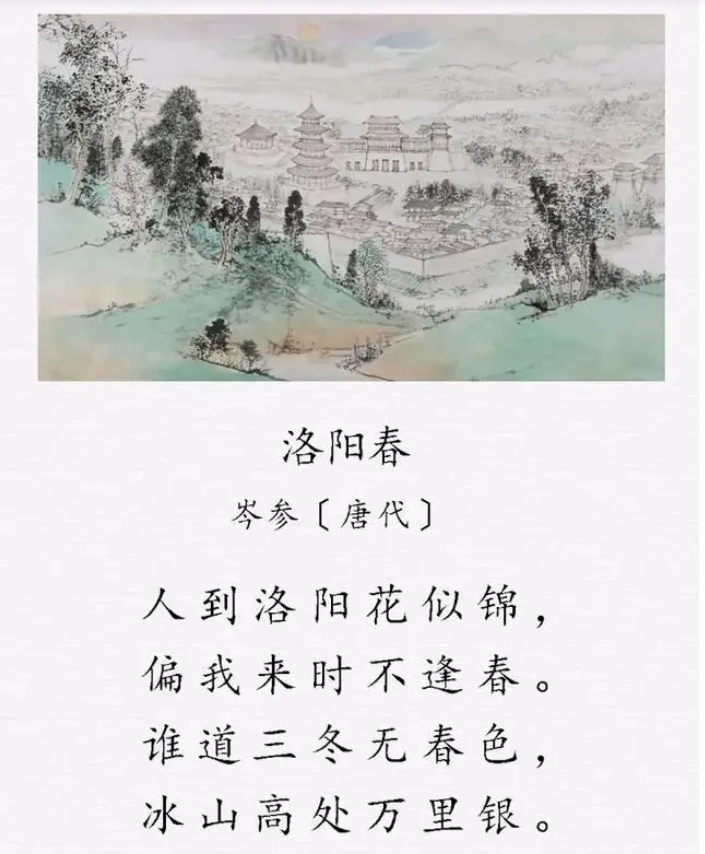 洛阳春
岑参〔唐代〕
人到洛阳花似锦，
偏我来时不逢春。
谁道三冬无春色，
冰山高处万里银。